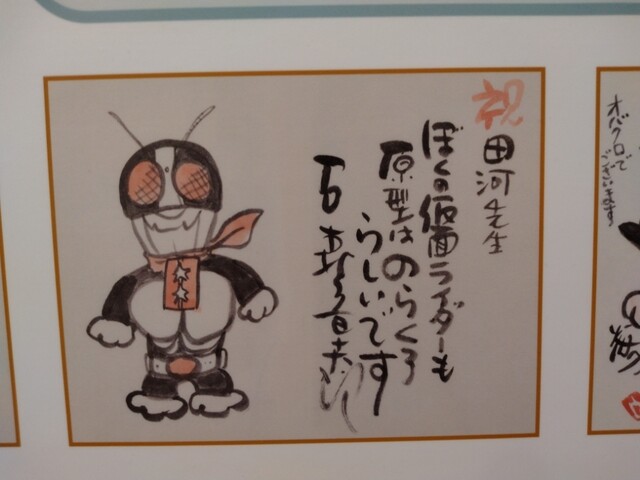 祝
田河先生
ぼくの仮面ライダーも
原型はのらくろ
らしいです
石森章太郎
オバクロで
ございます